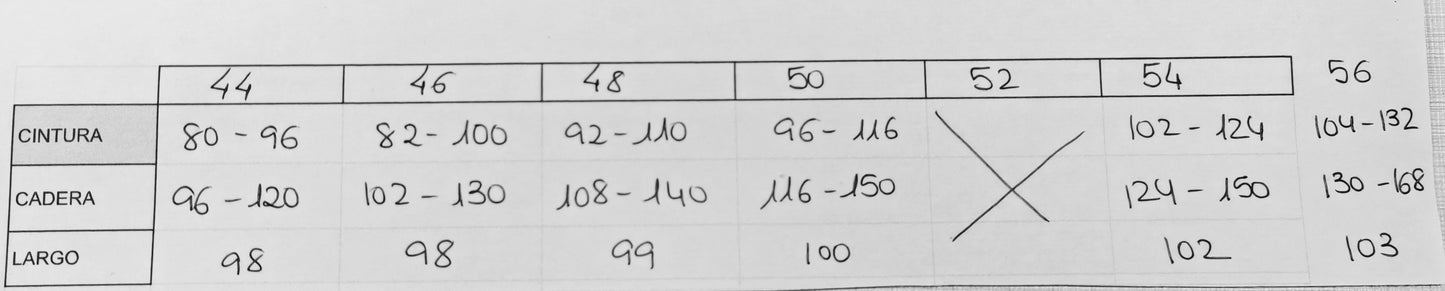 44 46 48 50 52 54 56
CINTURA 80 - 96 82 - 100 92 - 110 96 - 116 102 - 124 104 - 132
CADERA 96 - 120 102 - 130 108 - 140 116 - 150 124 - 150 130 - 168
LARGO 98 98 99 100 102 103